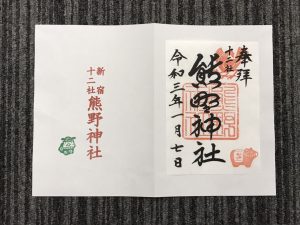 奉拝
十二社
熊野神社
令和三年一月七日
新宿
十二社
熊野神社